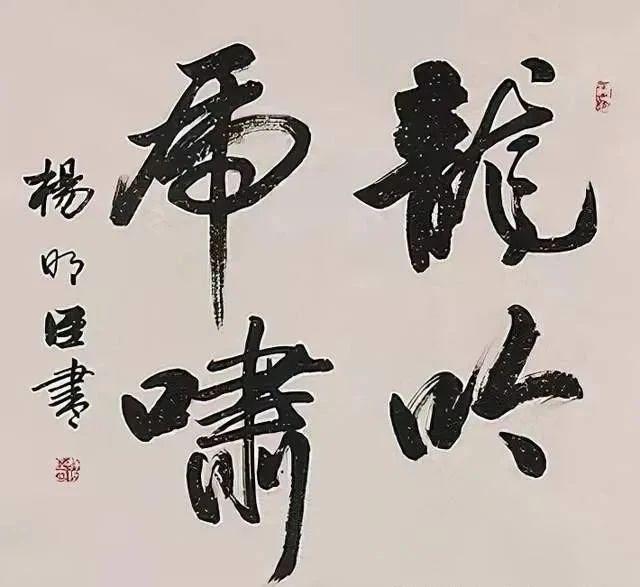 龍吟
虎嘯
楊明臣書